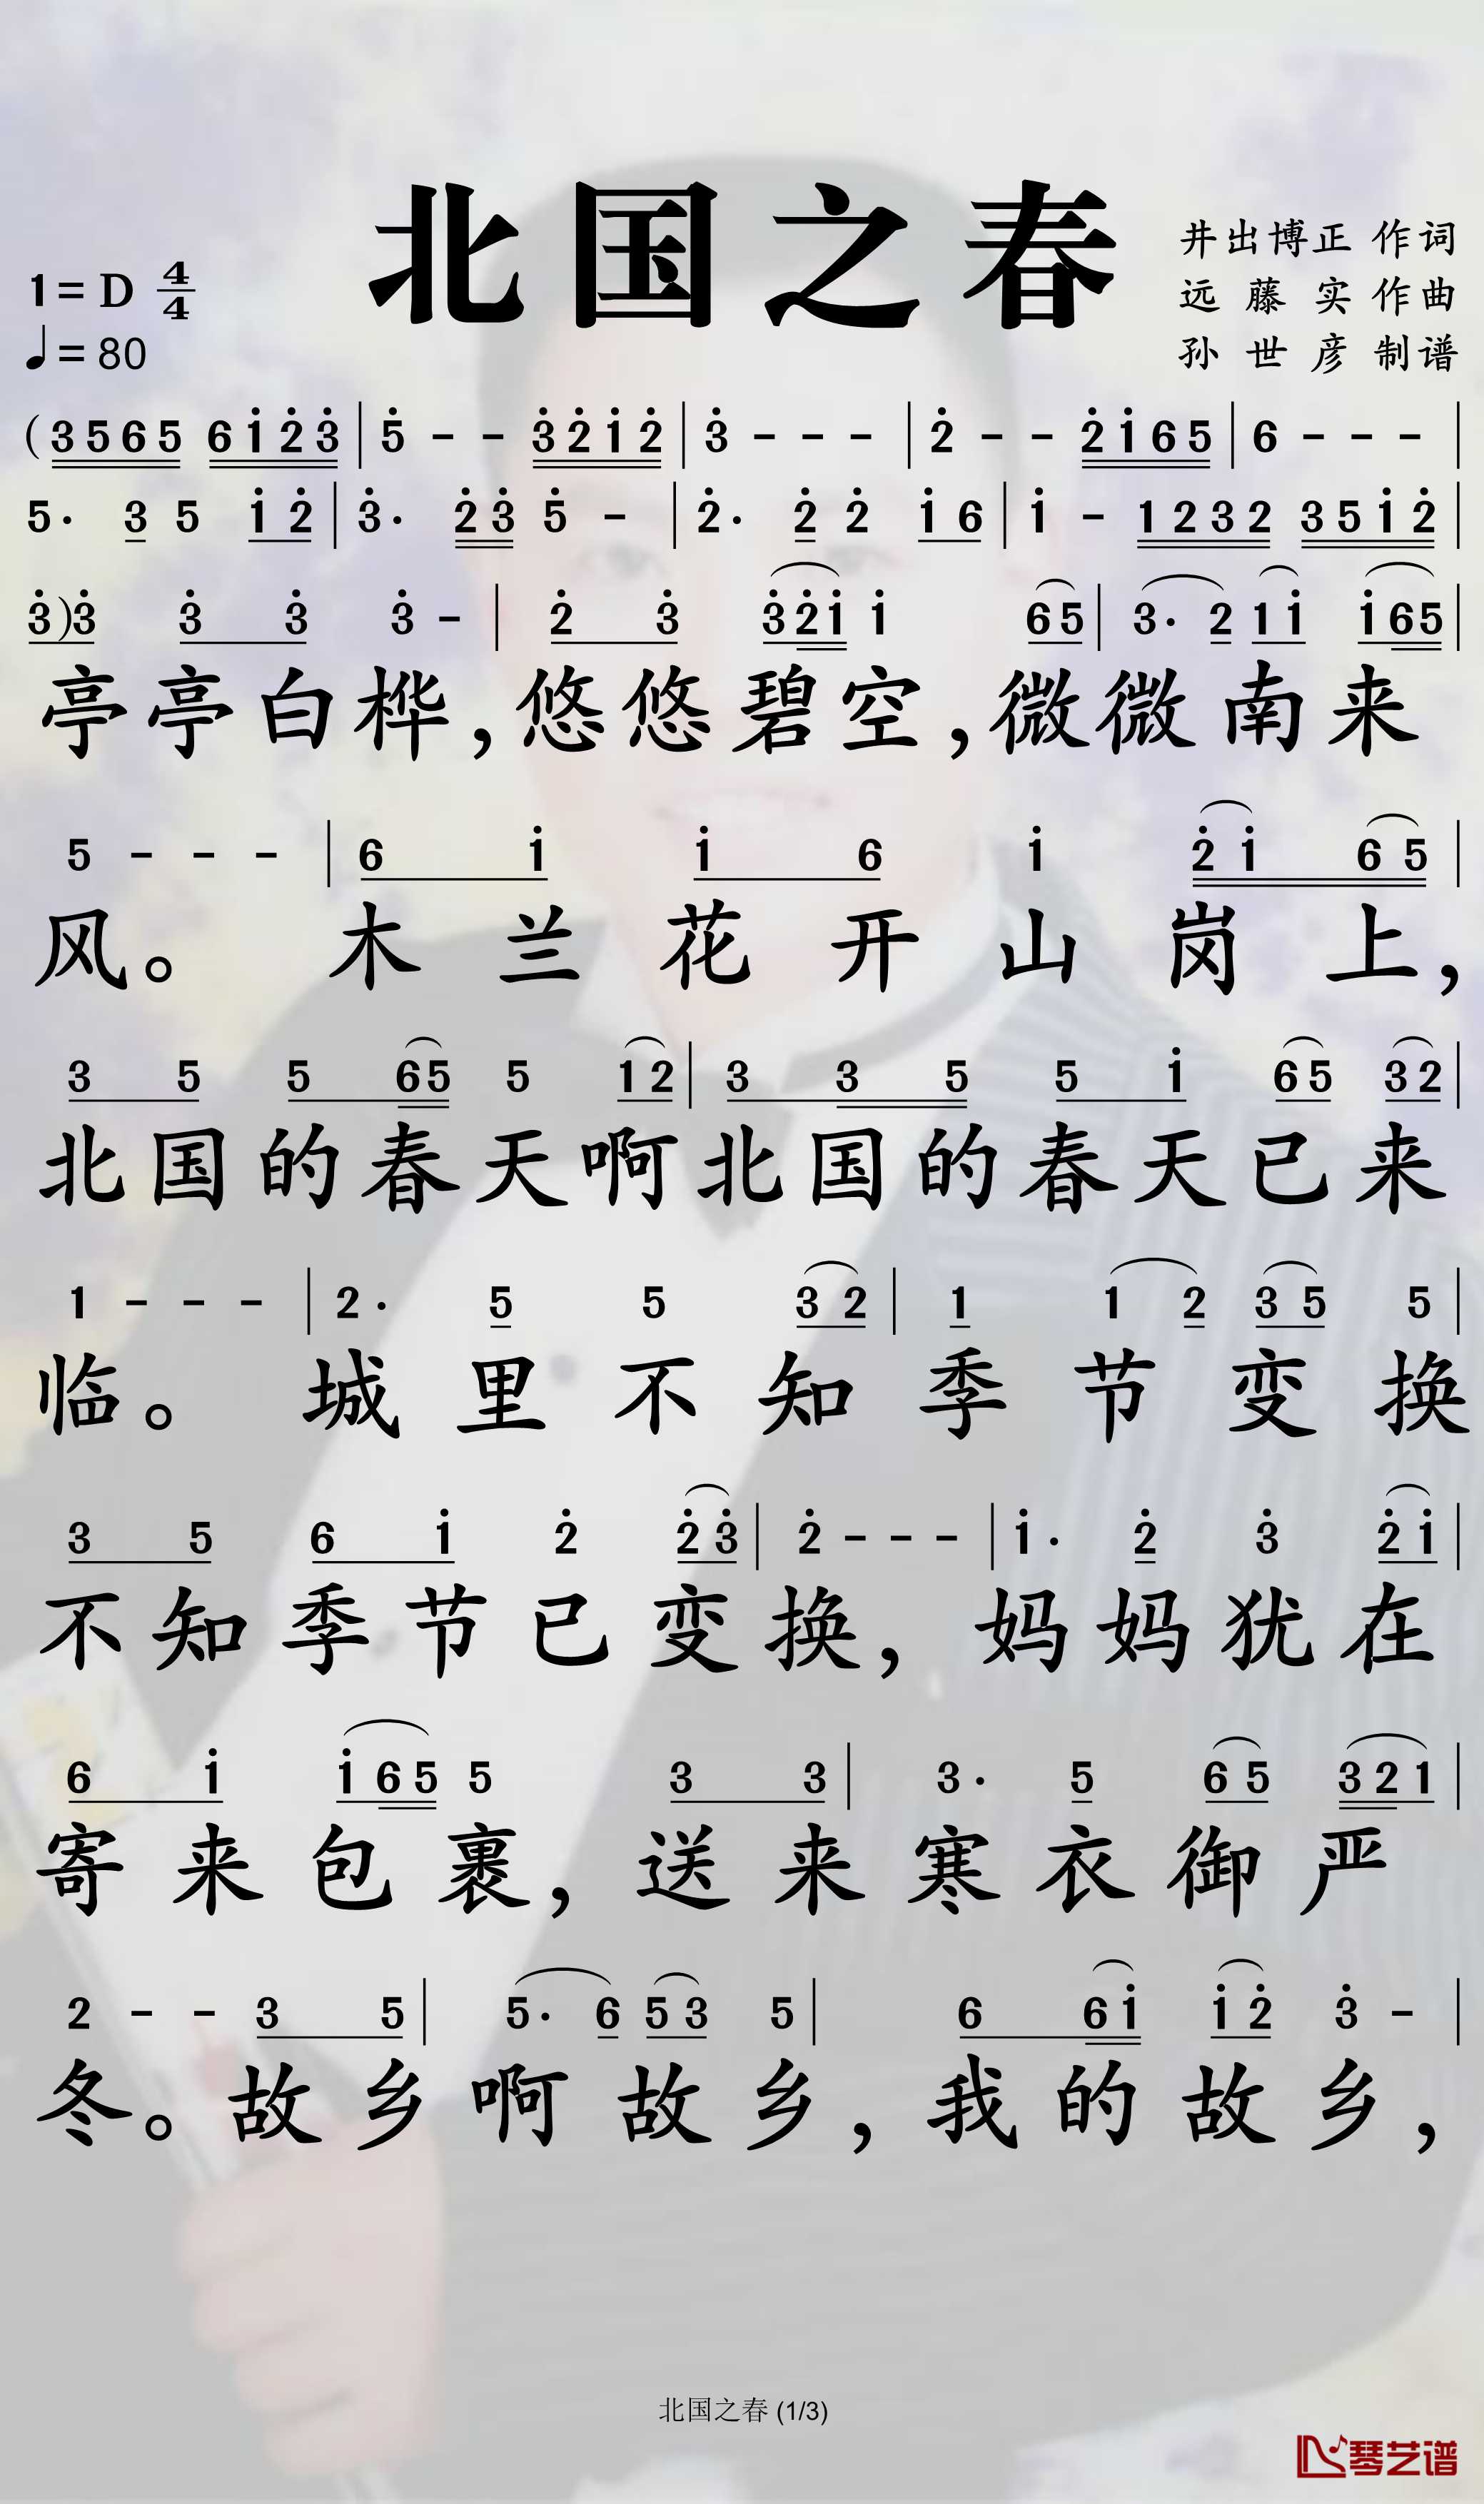 北国之春
井出博正 作词
1= D 4/4
远 藤 实 作曲
♩= 80
孙 世 彦 制谱
(3 5 6 5 6 1̇ 2̇ 3̇ | 5̇ - - 3̇ 2̇ 1̇ 2̇ | 3̇ - - - | 2̇ - - 2̇ 1̇ 6 5 | 6 - - - |
5. 3 5 1̇ 2̇ | 3̇. 2̇ 3̇ 5̇ - | 2̇. 2̇ 2̇ 1̇ 6 | 1̇ - 1 2 3 2 3 5 1̇ 2̇ |
3̇ ) 3̇ 3̇ 3̇ 3̇ - | 2̇ 3̇ 3̇ 2̇ 1̇ 1̇ 6 5 | 3. 2 1 1̇ 1̇ 6 5 |
亭亭白桦，悠悠碧空，微微南来
5 - - - | 6 1̇ 1̇ 6 1̇ 2̇ 1̇ 6 5 |
风。 木兰花开山岗上，
3 5 5 6 5 5 1 2 | 3 3 5 5 1̇ 6 5 3 2 |
北国的春天啊北国的春天已来
1 - - - | 2. 5 5 3 2 | 1 1 2 3 5 5 |
临。 城里不知季节变换
3 5 6 1̇ 2̇ 2̇ 3̇ | 2̇ - - - | 1̇. 2̇ 3̇ 2̇ 1̇ |
不知季节已变换，妈妈犹在
6 1̇ 1̇ 6 5 5 3 3 | 3. 5 6 5 3 2 1 |
寄来包裹，送来寒衣御严
2 - - 3 5 | 5. 6 5 3 5 | 6 6 1̇ 1̇ 2̇ 3̇ - |
冬。故乡啊故乡，我的故乡，
北国之春 (1/3)
琴艺谱